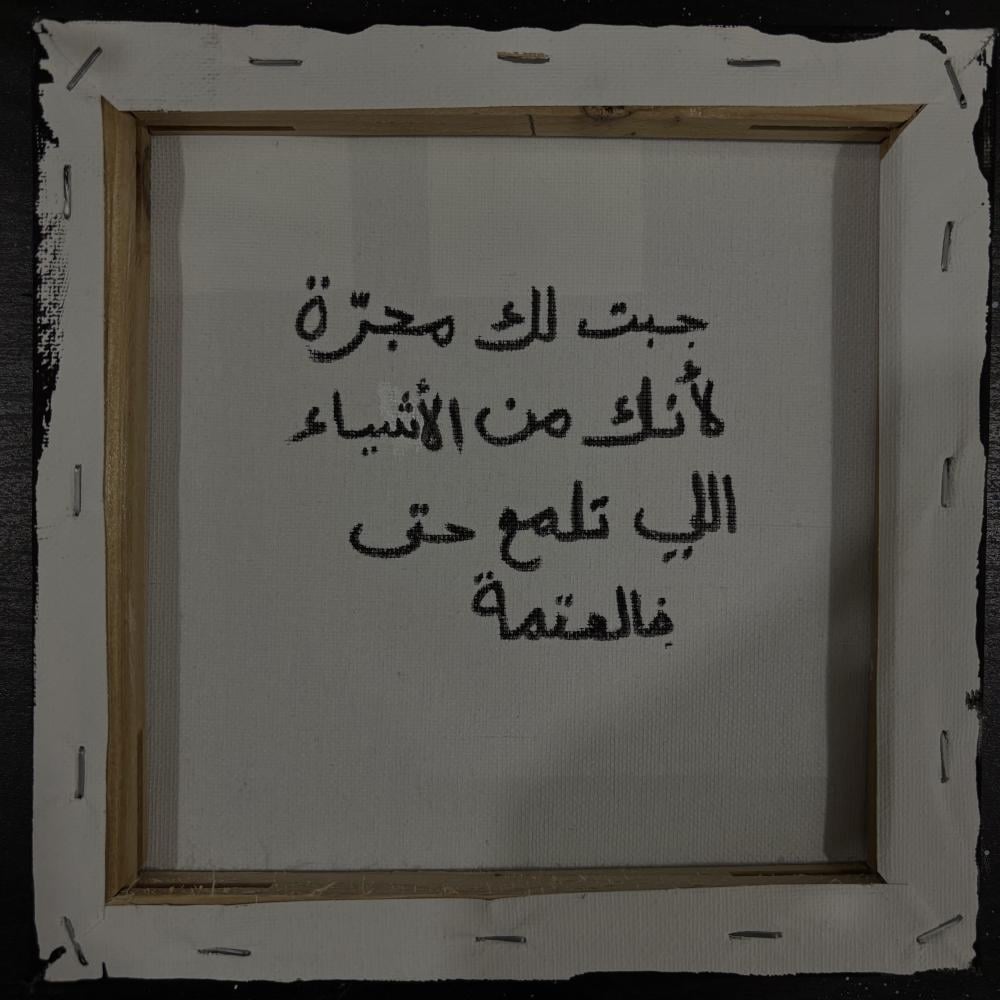 جبت لك مجرّة
لأنك من الأشياء
اللي تلمع حتى
فالعتمة